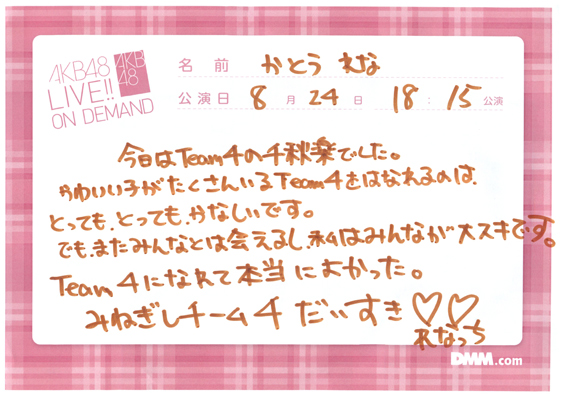 AKB48
LIVE!!
ON DEMAND
AKB
48
名前 かとう れな
公演日 8月24日 18:15公演
今日はTeam4の千秋楽でした。
かわいい子がたくさんいるTeam4をはなれるのは、
とっても、とっても、かなしいです。
でも、またみんなとは会えるし、私はみんなが大スキです。
Team 4になれて本当によかった。
みねぎしチーム4 だいすき♡♡
れなっち
DMM.com